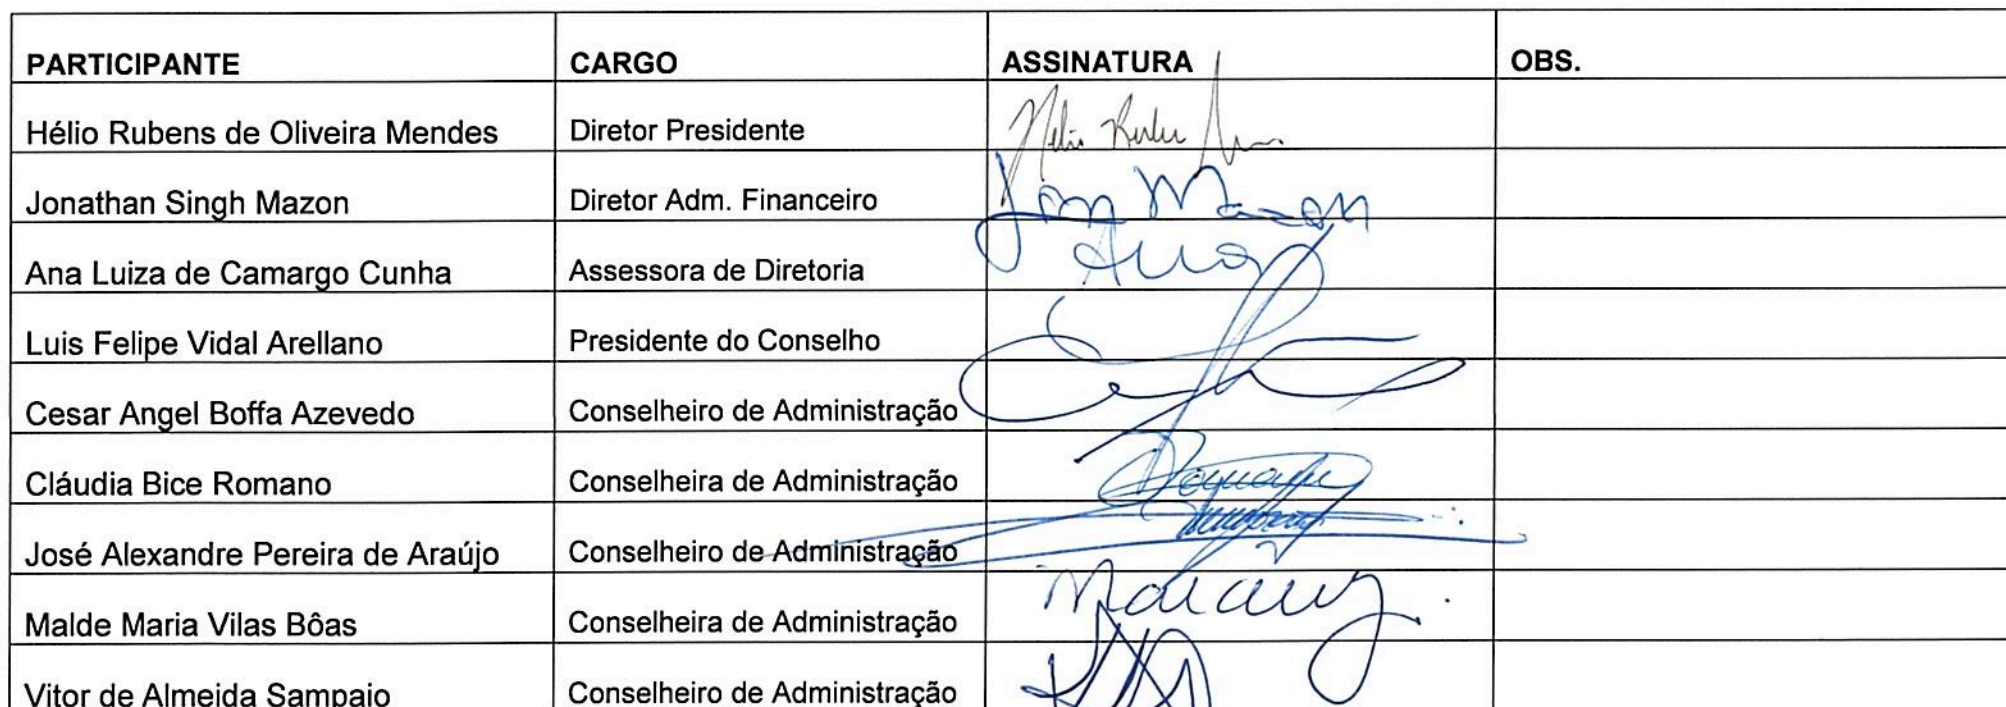 PARTICIPANTE CARGO ASSINATURA OBS.
Hélio Rubens de Oliveira Mendes Diretor Presidente Hélio
Jonathan Singh Mazon Diretor Adm. Financeiro Jon Mazon
Ana Luiza de Camargo Cunha Assessora de Diretoria Ana
Luis Felipe Vidal Arellano Presidente do Conselho
Cesar Angel Boffa Azevedo Conselheiro de Administração
Cláudia Bice Romano Conselheira de Administração
José Alexandre Pereira de Araújo Conselheiro de Administração
Malde Maria Vilas Bôas Conselheira de Administração
Vitor de Almeida Sampaio Conselheiro de Administração